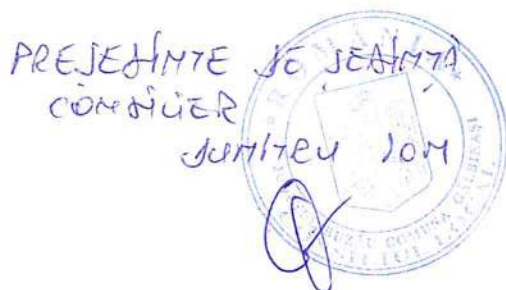 PREȘEDINTE DE ȘEDINȚĂ
CONSILIER
DUMITRU ION
ROMÂNIA
BUZĂU COMUNA GĂLBINAȘI
CONSILIUL LOCAL